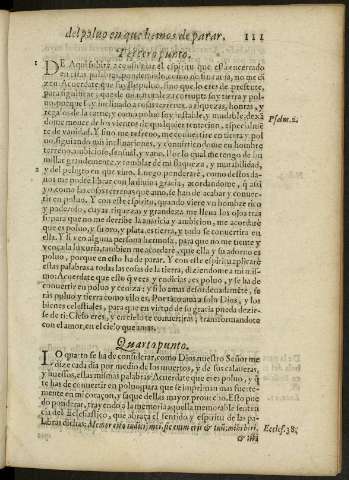 del poluo en que hemos de parar. 111
Tercero punto.
1 DE Aqui subiré a considerar el espiritu que està encerrado
en estas palabras, ponderando como no sin
zen: Acuerdate que fuyste poluo, sino que lo eres de presente,
para significar, que de mi naturaleza corrupta soy tierra y pol-
uo porque soy inclinado a cosas terrenas, a riquezas, honras, y
regalos de la carne, y como poluo soy instable, y mudable, dexã
dome menear de los vientos de qualquier tentacion, especialmẽ
te de vanidad. Y sino me refreno, me conuertire en tierra y pol
uo, siguiendo mis inclinaciones, y conuirtiendome en hombre
terreno, ambicioso, sensual, y vano. Por lo qual me tengo de hu
millar grandemente, y temblar de mi flaqueza, y mutabilidad,
2 y del peligro en que viuo. Luego ponderarè, como destos da-
ños me podrè librar con la diuina gracia, acordandome, que assi
yo, como las cosas terrenas que amo, se han de acabar y conuer-
tir en poluo. Y con este espiritu, quando viere vn hombre rico
y poderoso, cuyas riquezas y grandeza me lleua los ojos tras
si para que no me derribe la auaricia y ambicion, me acordarè
que es poluo, y su oro, y plata, es tierra, y todo se conuertira en
ella. Y si veo alguna persona hermosa, para que no me tiente y
vença la luxuria, tambien me acordarè, que ella y su adorno es
poluo, porque en esto ha de parar. Y con este espiritu aplicarè
estas palabras a todas las cosas de la tierra, diziendome a mi mis-
mo: Acuerdate que esto q̃ vees, y codicias, es poluo, y se ha de
conuertir en poluo y ceniza: y si lo amas desordenadamẽte, se
ras poluo y tierra como vilo es. Por tanto ama solo Dios, y los
bienes celestiales, para que en virtud de su gracia pueda dezir-
se de ti: Cielo eres, y en cielo te conuertiras, transformandote
con el amor, en el cielo que amas.
Psalm. 2.
Quarto punto.
LO quarto se ha de considerar, como Dios nuestro Señor me
dize cada dia por medio de los muertos, y de sus calaueras,
y huessos, estas mismas palabras: Acuerdate que eres poluo, y q̃
te has de conuertir en poluo, para que se impriman mas fuerte-
mente en mi coraçon, y saque dellas mayor prouecho. Esto pue
do ponderar, trayendo a la memoria aquella memorable senten
cia del Eclesiastico, que abraça el sentido y espiritu de las pa-
labras dichas: Memor esto iudicij mei, sic enim erit & tuũ, mihi heri, Eccles. 38.
& tibi